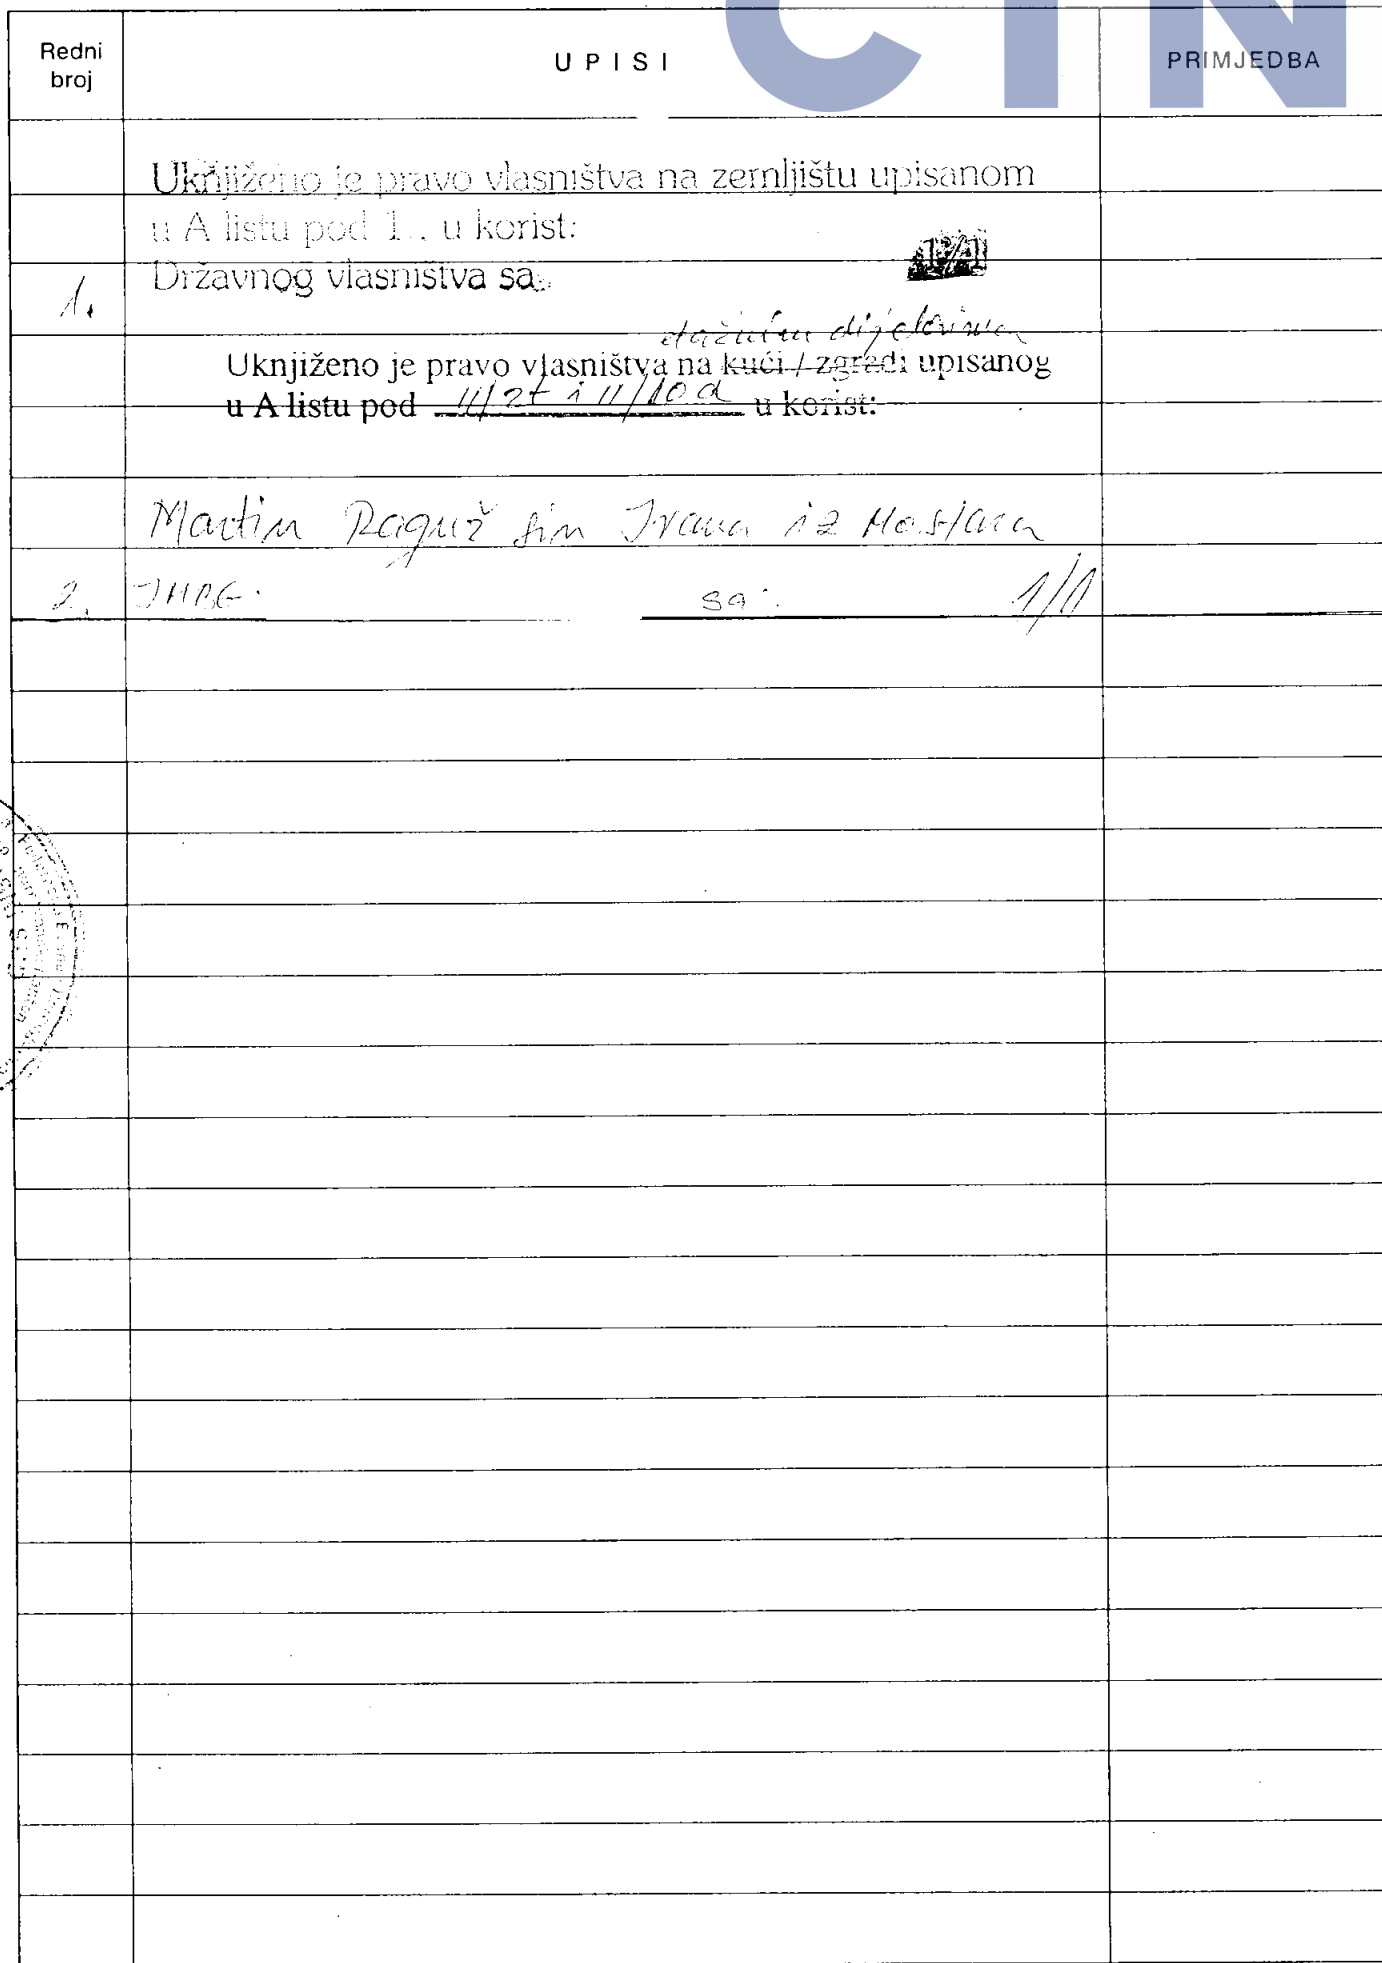 CIN
Redni broj
UPISI
PRIMJEDBA
Uknjiženo je pravo vlasništva na zemljištu upisanom
u A listu pod 1., u korist:
Državnog vlasništva sa 1/1
1.
etažnim dijelovima
Uknjiženo je pravo vlasništva na kući / zgradi upisanog
u A listu pod II/2t i II/10a u korist:
Martin Raguž sin Ivana iz Mostara
2. JMBG: sa: 1/1